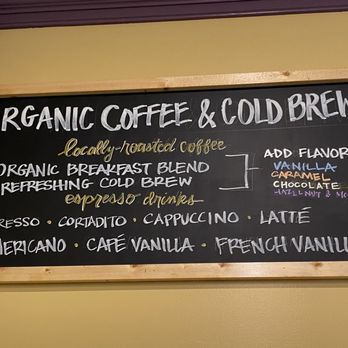 RGANIC COFFEE & COLD BREW
locally-roasted coffee
ORGANIC BREAKFAST BLEND
REFRESHING COLD BREW
ADD FLAVOR
VANILLA
CARAMEL
CHOCOLATE
HAZELNUT &
espresso drinks
RESSO · CORTADITO · CAPPUCCINO · LATTÉ
ERICANO · CAFÉ VANILLA · FRENCH VANILL